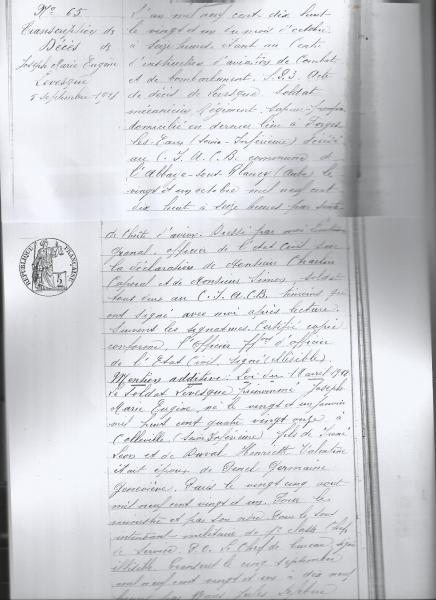 N° 65
Transcription de
Décès de
Joseph Marie Eugène
Levesque
5 Septembre 1921
L'an mil neuf cent dix huit
le vingt et un du mois d'octobre
à seize heures, étant au Centre
d'instruction d'aviation de Combat
et de bombardement. S.P.23. Acte
de décès de Levesque soldat
mécanicien Régiment
domicilié en dernier lieu à Forges
les Eaux (Seine-Inférieure) décédé
au C.I.A.C.B. commune de
l'Abbaye-sous-Plancy (Aube) le
vingt et un octobre mil neuf cent
dix huit à seize heures par suite
de Chute d'avion. Dressé par moi
officier de l'état Civil sur
la déclaration de Monsieur Charles
Caporal et de Monsieur Simon, soldat
tous deux au C.I.A.C.B. témoins qui
ont signé avec moi après lecture.
Suivent les signatures. Certifié copie
conforme. L'officier d'officier
de l'Etat Civil. Signé (illisible).
Mention additive: Loi du 18 avril 1918
Le Soldat Levesque prénommé Joseph
Marie Eugène, né le vingt et un janvier
mil huit cent quatre vingt onze à
Colleville (Seine Inférieure) fils de
Léon et de Duval Henriette Valentine
était époux de Germaine
Geneviève. Paris le vingt cinq août
mil neuf cent vingt et un. Pour le
ministre et par son ordre Pour le sous
intendant militaire de 1re classe Chef
de Service. P.O. Le Chef de bureau signé
illisible. Transcrit le cinq septembre
mil neuf cent vingt et un à dix neuf
heures par Nous Jules
RÉPUBLIQUE FRANÇAISE